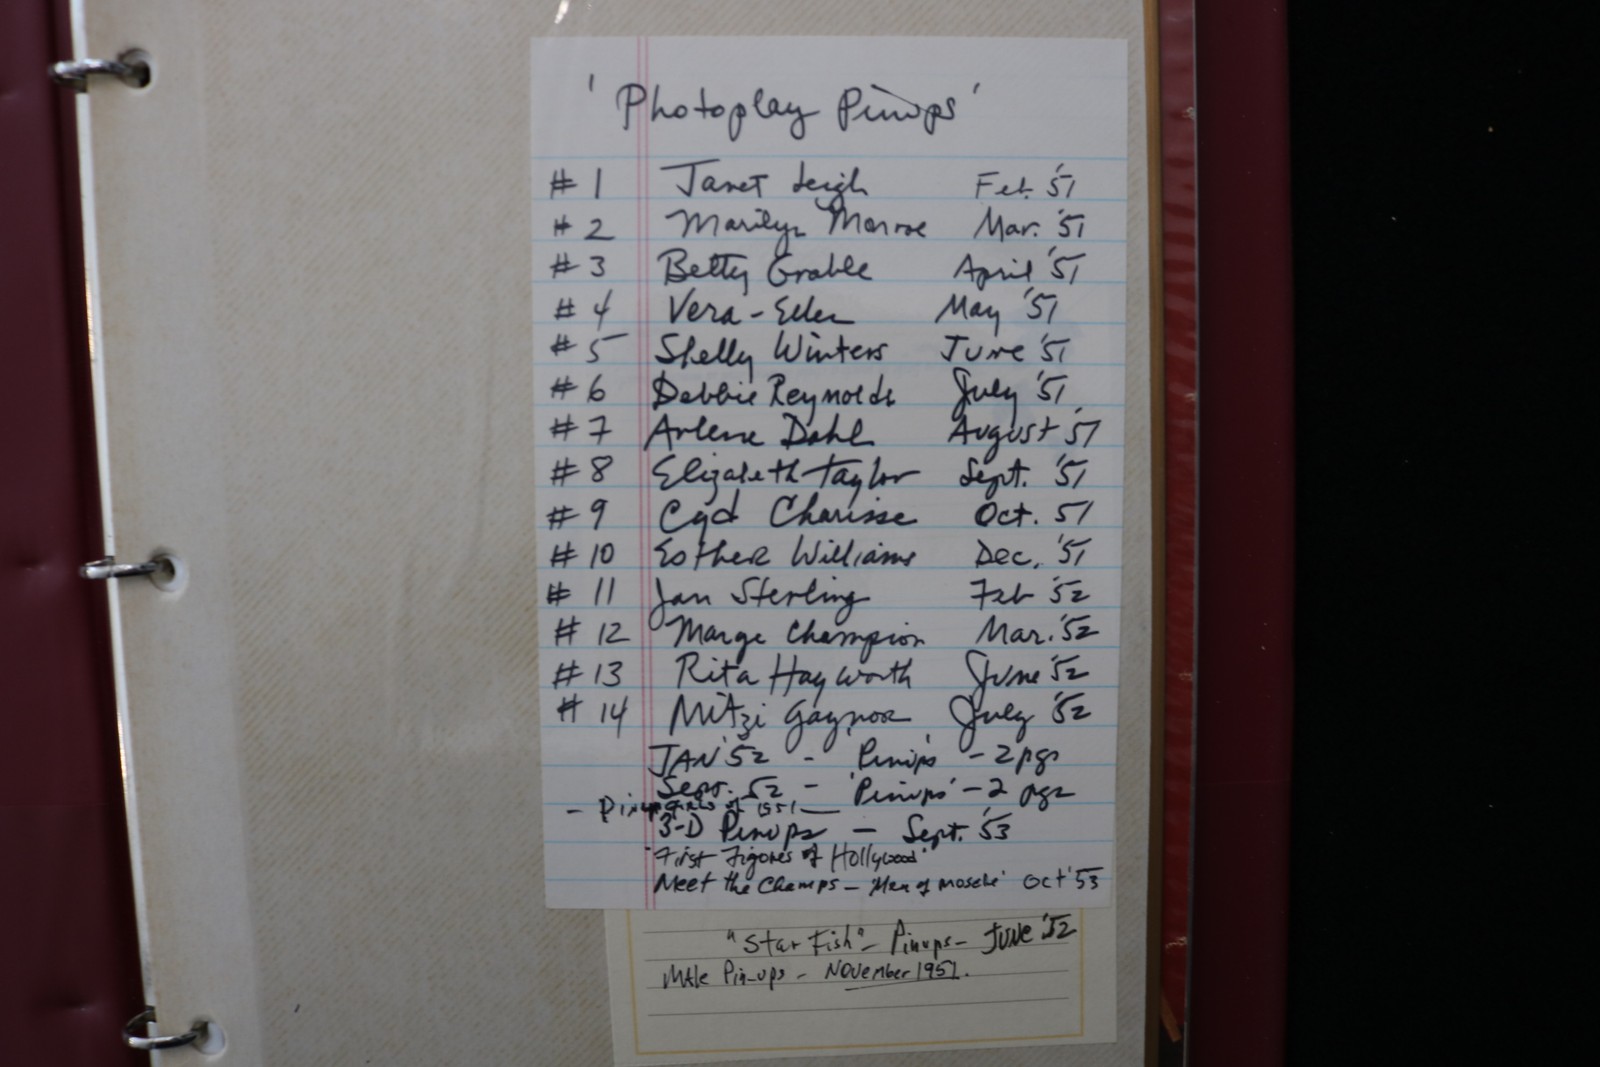 'Photoplay Pinups'
# 1 Janet Leigh Feb. '51
# 2 Marilyn Monroe Mar. '51
# 3 Betty Grable April '51
# 4 Vera-Ellen May '51
# 5 Shelly Winters June '51
# 6 Debbie Reynolds July '51
# 7 Arlene Dahl August '51
# 8 Elizabeth Taylor Sept. '51
# 9 Cyd Charisse Oct. 51
# 10 Esther Williams Dec. '51
# 11 Jan Sterling Feb '52
# 12 Marge Champion Mar. '52
# 13 Rita Hayworth June '52
# 14 Mitzi Gaynor July '52
JAN '52 - 'Pinups' - 2 pgs
Sept. 52 - 'Pinups' - 2 pgs
- Pinup of 1951 -
3-D Pinups - Sept. '53
'First Figures of Hollywood'
Meet the Champs - 'Men of muscle' Oct '53
"Star Fish" - Pinups - JUNE '52
Male Pin-ups - November 1951.